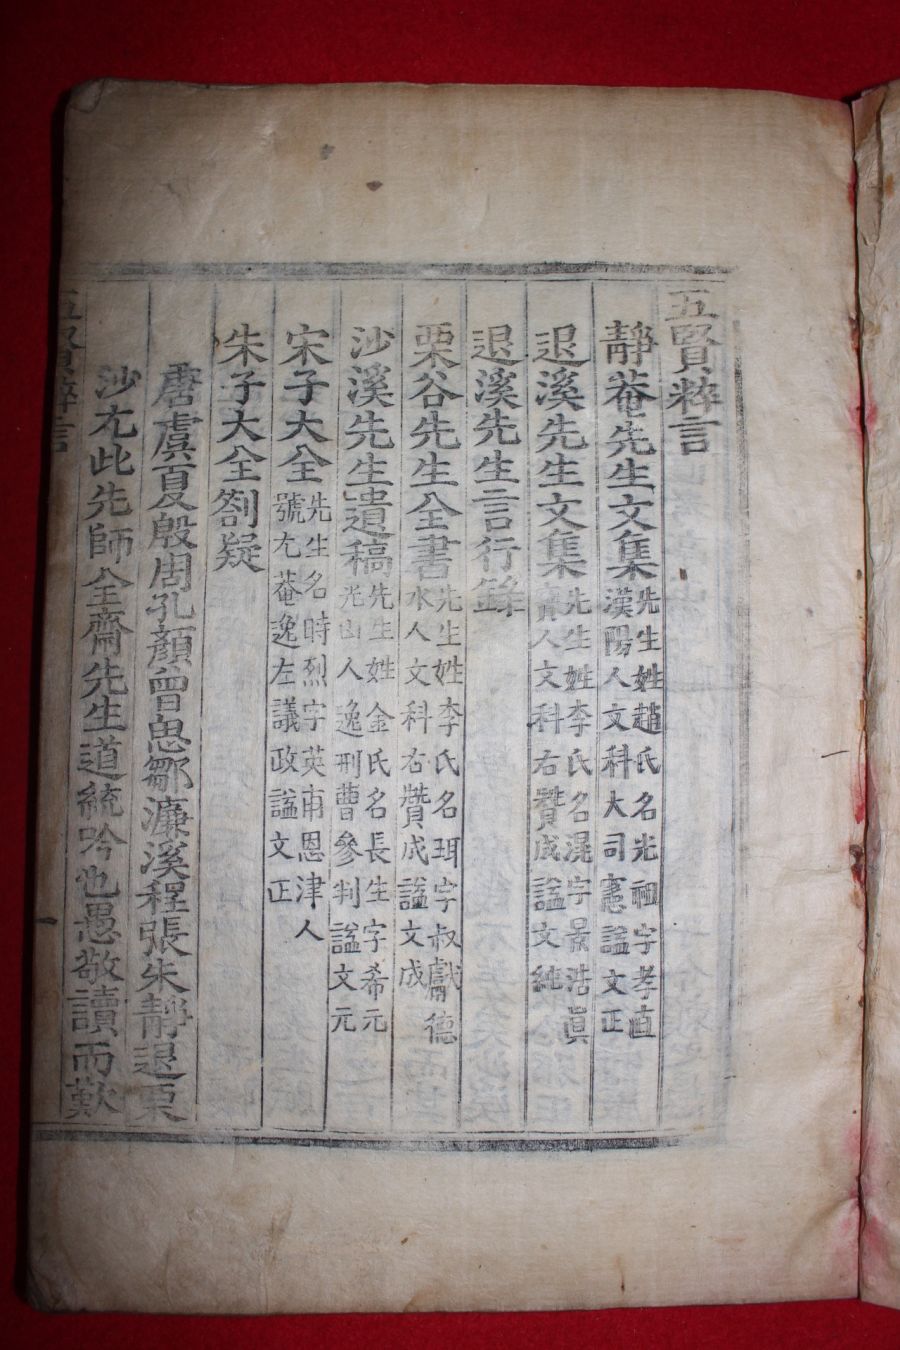 五賢粹言
靜菴先生文集先生姓趙氏名光祖字孝直漢陽人文科大司憲謚文正
退溪先生文集先生姓李氏名滉字景浩眞寶人文科右贊成謚文純
退溪先生言行錄
栗谷先生全書先生姓李氏名珥字叔獻德水人文科右贊成謚文成
沙溪先生遺稿先生姓金氏名長生字希元光山人逸刑曹參判謚文元
宋子大全先生名時烈字英甫恩津人號尤菴逸左議政謚文正
朱子大全劄疑
唐虞夏殷周孔顏曾思鄒濂溪程張朱靜退栗
沙尤此先師全齋先生道統吟也愚敬讀而歎
五賢粹言
一